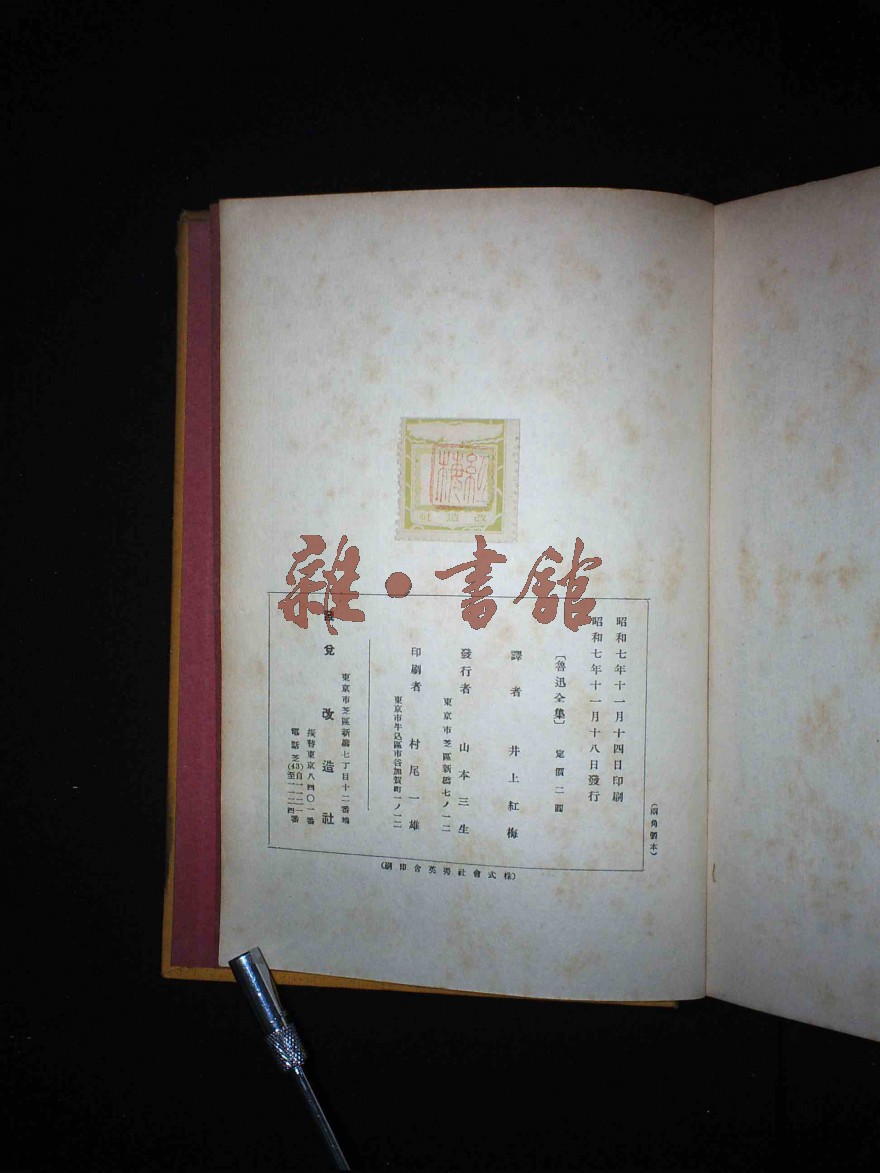 紅梅
改造社
雜·書舘
昭和七年十一月十四日印刷
昭和七年十一月十八日發行
〔魯迅全集〕 定價二圓
譯者 井上紅梅
發行者 山本三生
東京市芝區新橋七ノ一二
印刷者 村尾一雄
東京市牛込區市谷加賀町一ノ一二
發兌 改造社
東京市芝區新橋七丁目十二番地
振替東京八四〇一番
電話芝(43)自一一二一至一一二四番
(株式會社秀英舍印刷)